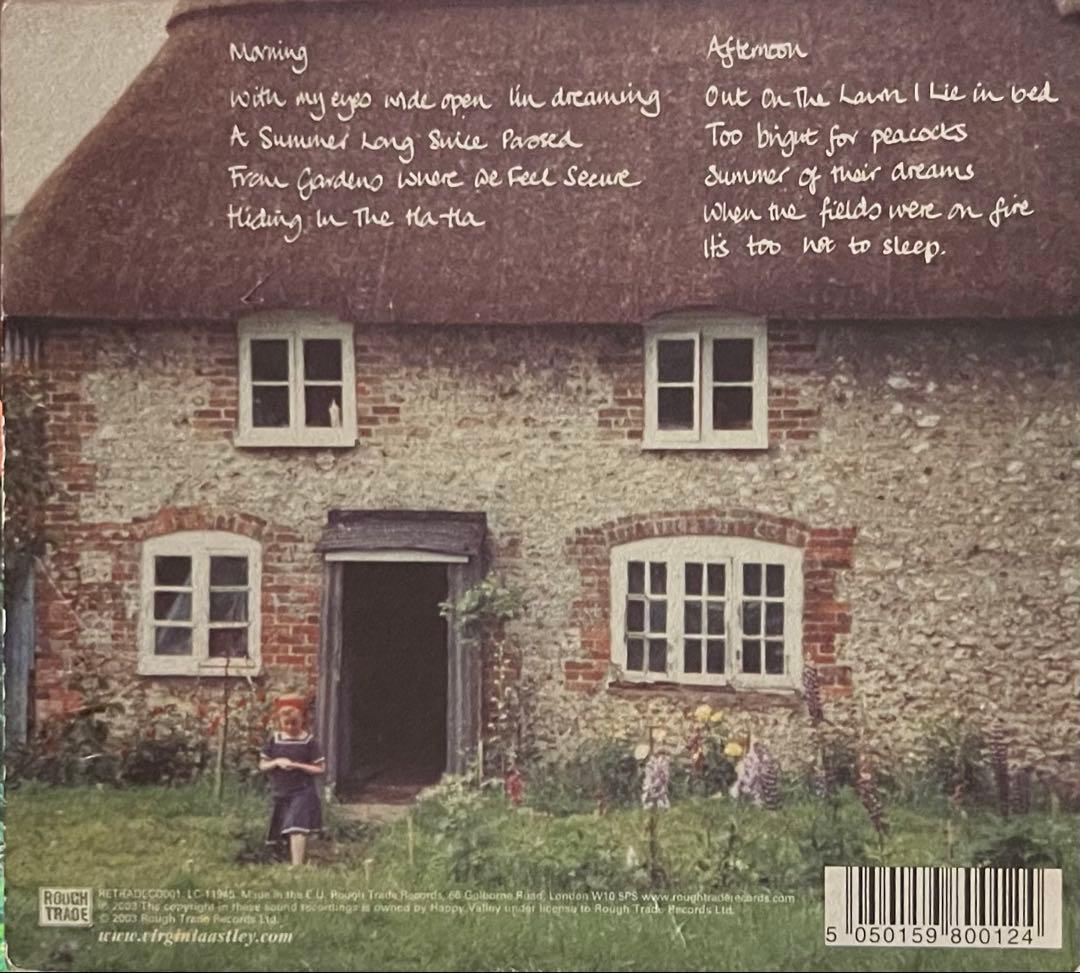 Morning
With my eyes wide open I'm dreaming
A Summer Long Since Passed
From Gardens Where We Feel Secure
Hiding In The Ha-Ha
Afternoon
Out On The Lawn I Lie in bed
Too bright for peacocks
Summer of their dreams
When the fields were on fire
It's too hot to sleep.
ROUGH
TRADE
RETRADECD001 LC-11945 Made in the E.U. Rough Trade Records, 66 Golborne Road, London W10 5PS www.roughtraderecords.com
℗ 2003 The copyright in these sound recordings is owned by Happy Valley under license to Rough Trade Records Ltd.
© 2003 Rough Trade Records Ltd.
www.virginiaastley.com
5 050159 800124